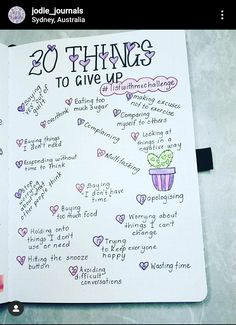 jodie_journals
Sydney, Australia
20 THINGS
TO GIVE UP
#listwithmechallenge
Saying
yes out of
guilt
Overthink
Eating too
much sugar
making excuses
not to exercise
Comparing
myself to others
Buying things
I don't need
Complaining
Looking at
things in a
negative way
Responding without
time to think
Multitasking
Stop
worrying
about what
other people
think
Saying
I don't have
time
Apologising
Buying
too much food
Worrying about
things I can't
change
Holding onto
things I don't
use or need
Trying
to keep everyone
happy
Hitting the snooze
button
Avoiding
difficult
conversations
Wasting time